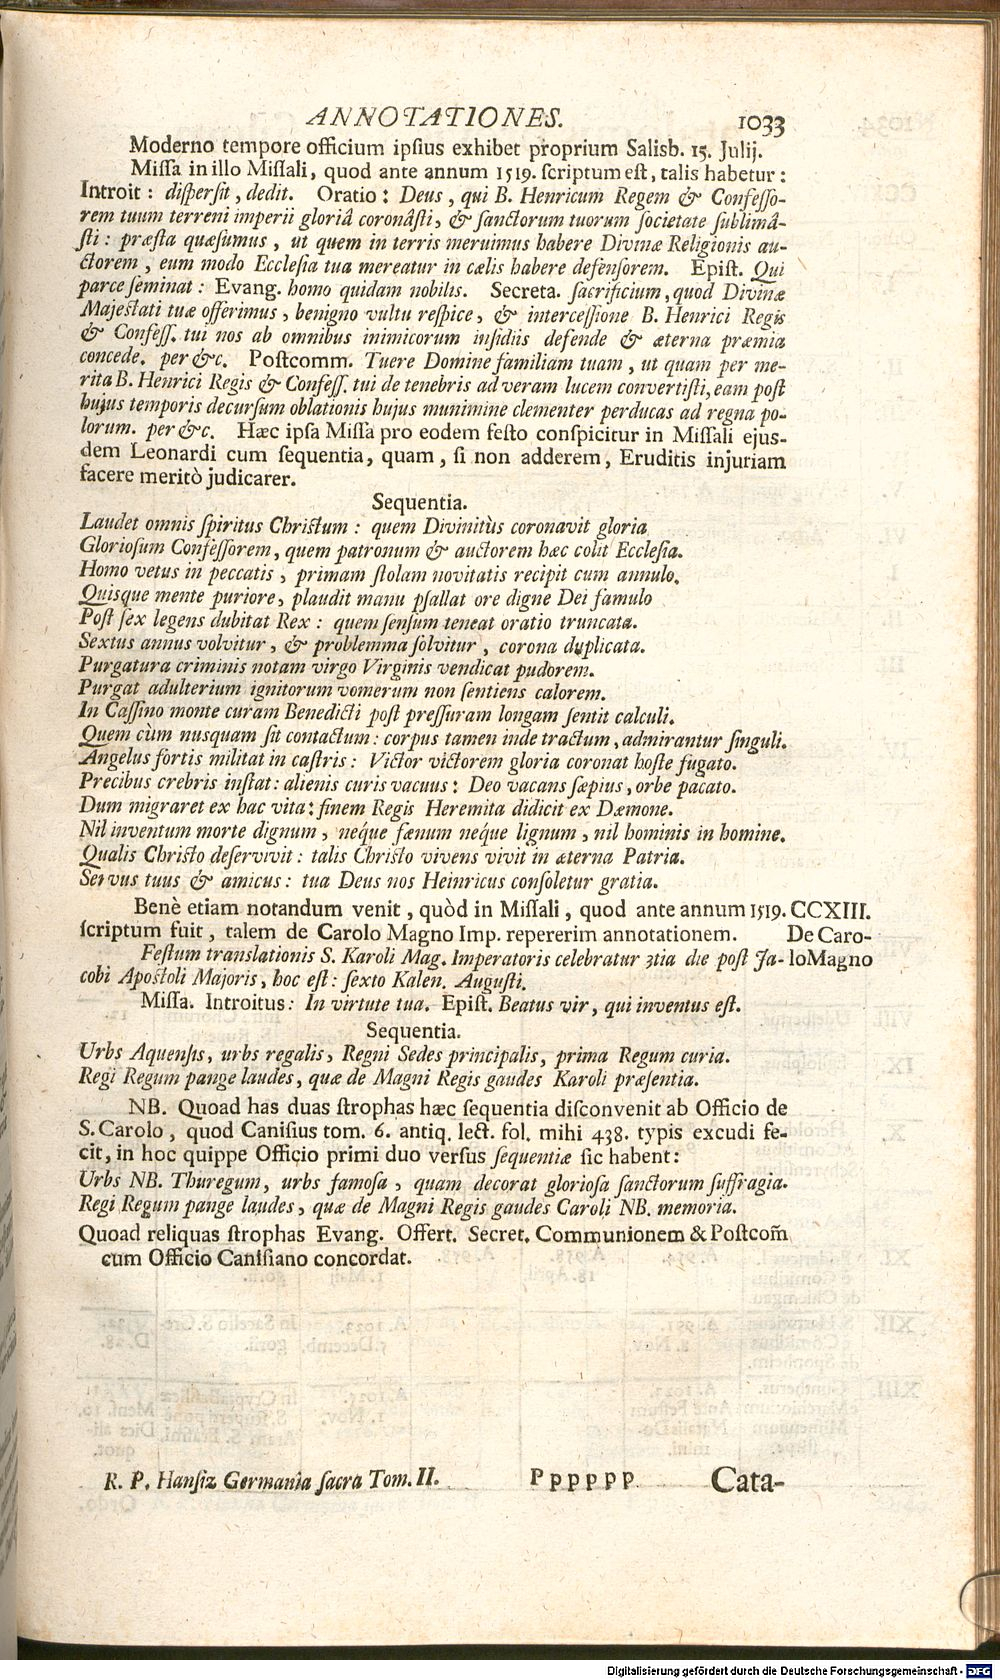 ANNOTATIONES. 1033
Moderno tempore officium ipsius exhibet proprium Salisb. 15. Julij.
Missa in illo Missali, quod ante annum 1519. scriptum est, talis habetur:
Introit: dispersit, dedit. Oratio: Deus, qui B. Henricum Regem & Confesso-
rem tuum terreni imperii gloriâ coronâsti, & sanctorum tuorum societate sublimâ-
sti: præsta quæsumus, ut quem in terris meruimus habere Divinæ Religionis au-
ctorem, eum modo Ecclesia tua mereatur in cælis habere defensorem. Epist. Qui
parce seminat: Evang. homo quidam nobilis. Secreta. sacrificium, quod Divinæ
Majestati tuæ offerimus, benigno vultu respice, & intercessione B. Henrici Regis
& Confess. tui nos ab omnibus inimicorum insidiis defende & æterna præmia
concede. per &c. Postcomm. Tuere Domine familiam tuam, ut quam per me-
rita B. Henrici Regis & Confess. tui de tenebris ad veram lucem convertisti, eam post
hujus temporis decursum oblationis hujus munimine clementer perducas ad regna po-
lorum. per &c. Hæc ipsa Missa pro eodem festo conspicitur in Missali ejus-
dem Leonardi cum sequentia, quam, si non adderem, Eruditis injuriam
facere meritò judicarer.
Sequentia.
Laudet omnis spiritus Christum: quem Divinitùs coronavit gloria
Gloriosum Confessorem, quem patronum & auctorem hæc colit Ecclesia.
Homo vetus in peccatis, primam stolam novitatis recipit cum annulo.
Quisque mente puriore, plaudit manu psallat ore digne Dei famulo
Post sex legens dubitat Rex: quem sensum teneat oratio truncata.
Sextus annus volvitur, & problemma solvitur, corona duplicata.
Purgatura criminis notam virgo Virginis vendicat pudorem.
Purgat adulterium ignitorum vomerum non sentiens calorem.
In Cassino monte curam Benedicti post pressuram longam sentit calculi.
Quem cùm nusquam sit contactum: corpus tamen inde tractum, admirantur singuli.
Angelus fortis militat in castris: Victor victorem gloria coronat hoste fugato.
Precibus crebris instat: alienis curis vacuus: Deo vacans sæpius, orbe pacato.
Dum migraret ex hac vita: finem Regis Heremita didicit ex Dæmone.
Nil inventum morte dignum, neque fænum neque lignum, nil hominis in homine.
Qualis Christo deservivit: talis Christo vivens vivit in æterna Patria.
Servus tuus & amicus: tua Deus nos Heinricus consoletur gratia.
Benè etiam notandum venit, quòd in Missali, quod ante annum 1519. CCXIII.
scriptum fuit, talem de Carolo Magno Imp. repererim annotationem. De Caro-
Festum translationis S. Karoli Mag. Imperatoris celebratur 3tia die post Ja- lo Magno
cobi Apostoli Majoris, hoc est: sexto Kalen. Augusti.
Missa. Introitus: In virtute tua. Epist. Beatus vir, qui inventus est.
Sequentia.
Urbs Aquensis, urbs regalis, Regni Sedes principalis, prima Regum curia.
Regi Regum pange laudes, quæ de Magni Regis gaudes Karoli præsentia.
NB. Quoad has duas strophas hæc sequentia disconvenit ab Officio de
S. Carolo, quod Canisius tom. 6. antiq. lect. fol. mihi 438. typis excudi fe-
cit, in hoc quippe Officio primi duo versus sequentiæ sic habent:
Urbs NB. Thuregum, urbs famosa, quam decorat gloriosa sanctorum suffragia.
Regi Regum pange laudes, quæ de Magni Regis gaudes Caroli NB. memoria.
Quoad reliquas strophas Evang. Offert. Secret. Communionem & Postcom̃
cum Officio Canisiano concordat.
R. P. Hansiz Germania sacra Tom. II. Pppppp Cata-
Digitalisierung gefördert durch die Deutsche Forschungsgemeinschaft - DFG